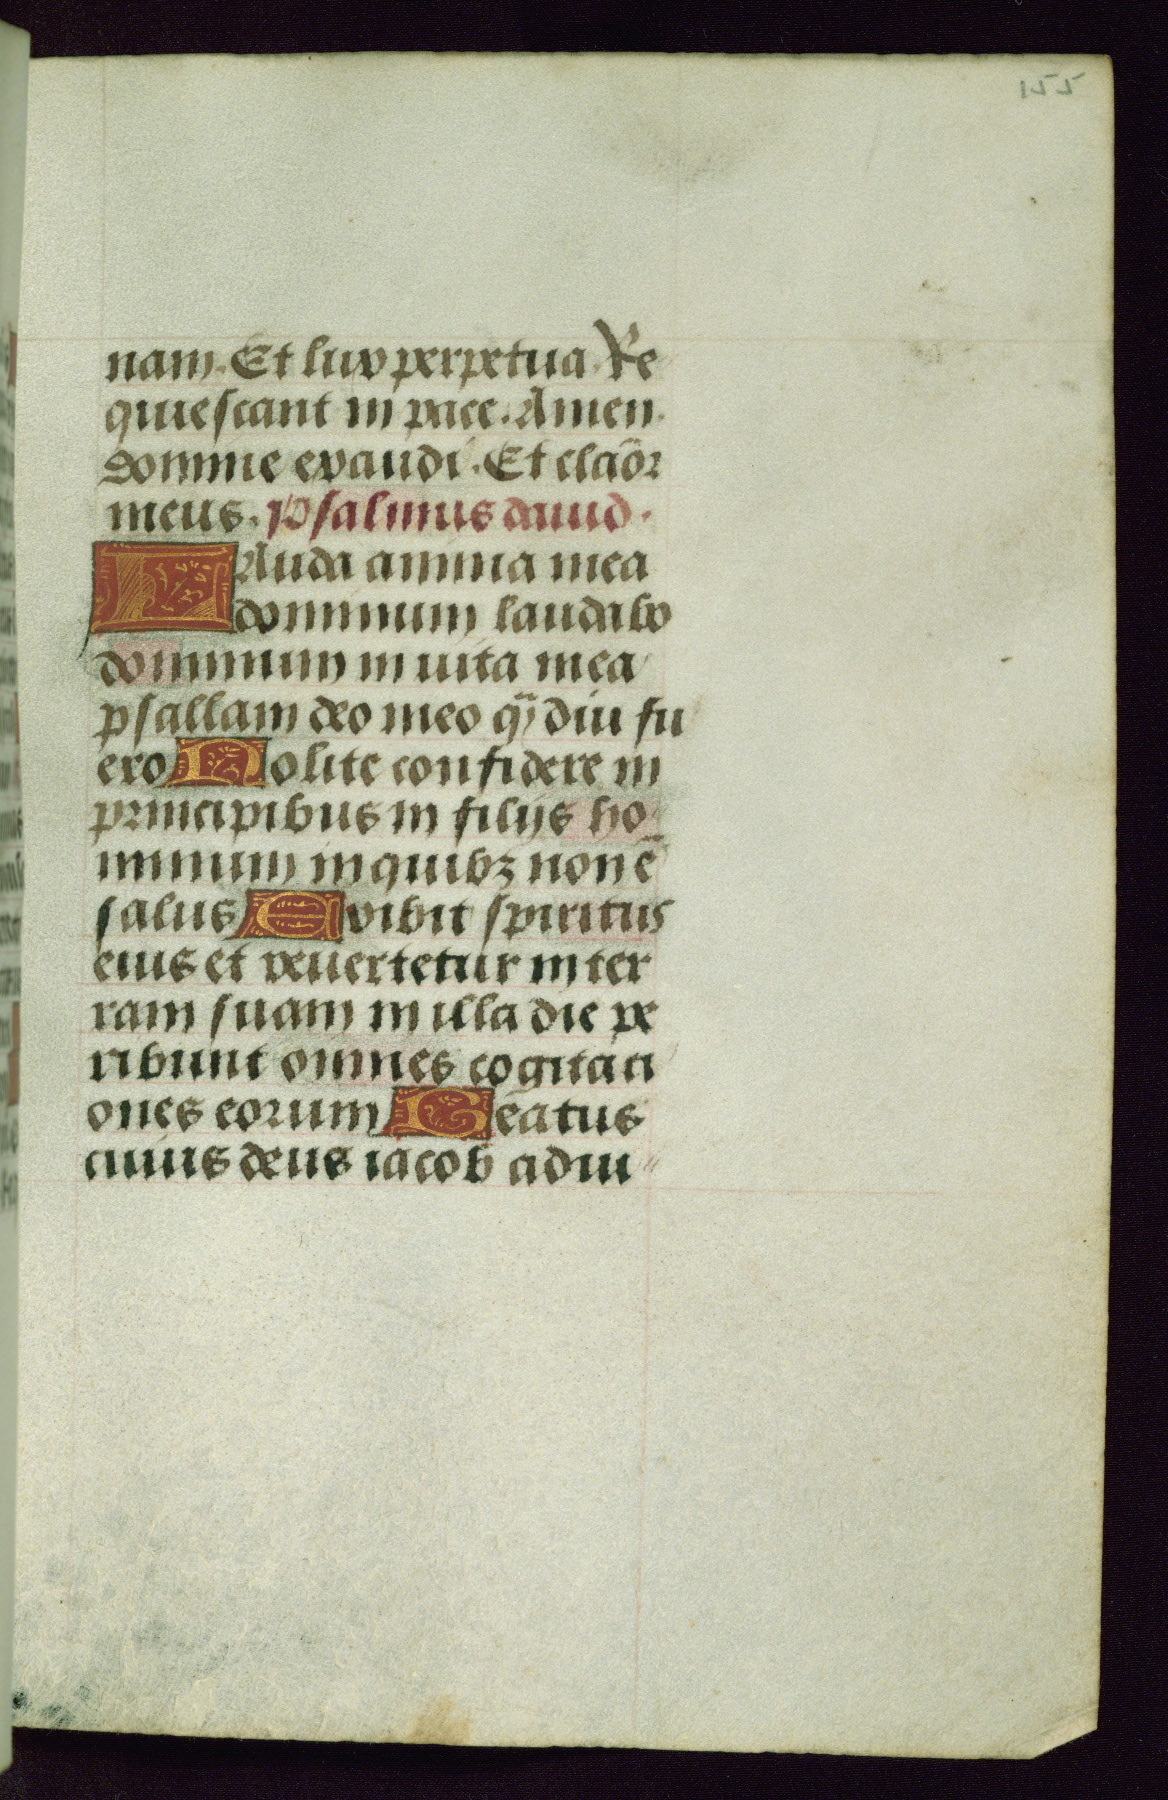 155
nam. Et lux perpetua. Re
quiescant in pace. Amen.
domine exaudi. Et claõr
meus. psalmus dauid.
LAuda anima mea
dominum laudabo
dominum in uita mea
psallam deo meo q̃diu fu
ero Nolite confidere in
principibus in filijs ho
minum in quibꝫ non ẽ
salus Exibit spiritus
eius et reuertetur in ter
ram suam in illa die pe
ribunt omnes cogitati
ones eorum Beatus
cuius deus iacob adiu